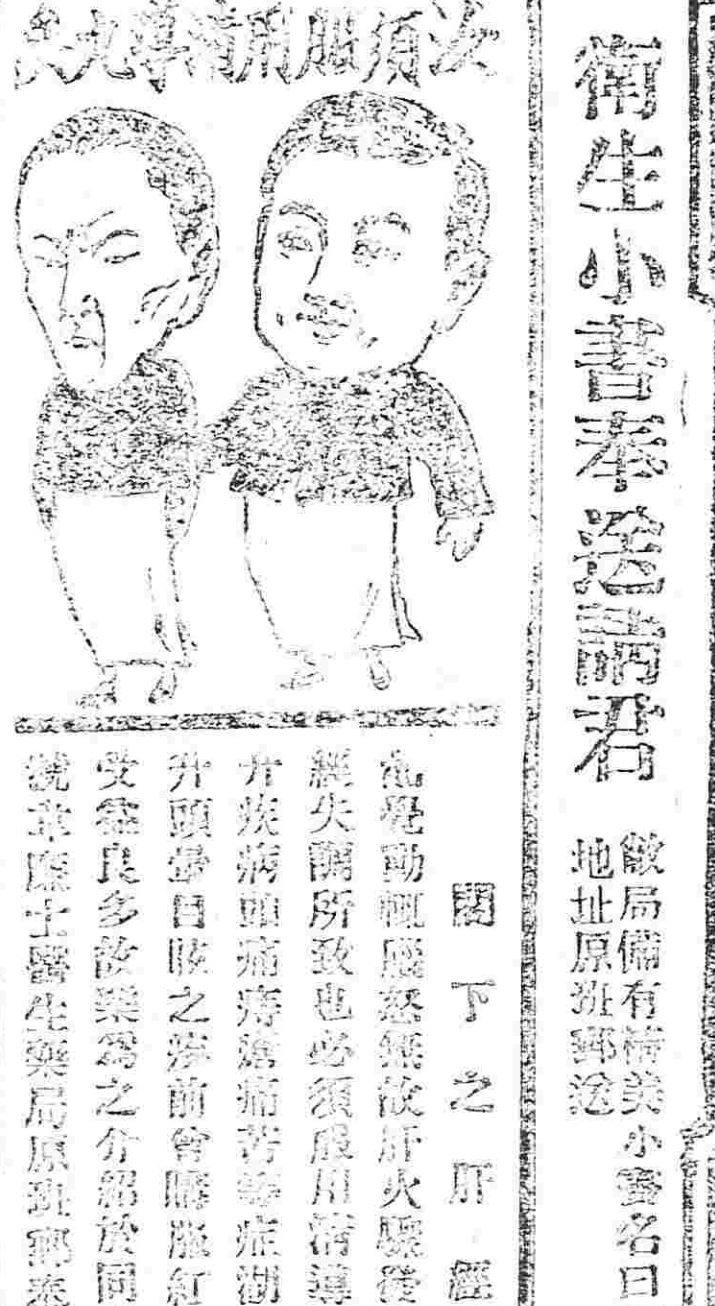 衛生小書奉送請君
敝局備有精美小書名曰
地址原班郵送
必須服用清導丸矣
閣下之肝經
也覺動輒腦怒無故肝火驟發
經失調所致也必須服用清導
疾病頭痛痔瘡痛苦等症
升頭暈目眩之疹前曾購服紅
受益良多故樂爲之介紹於同
韋廉士醫生藥局原班郵奉